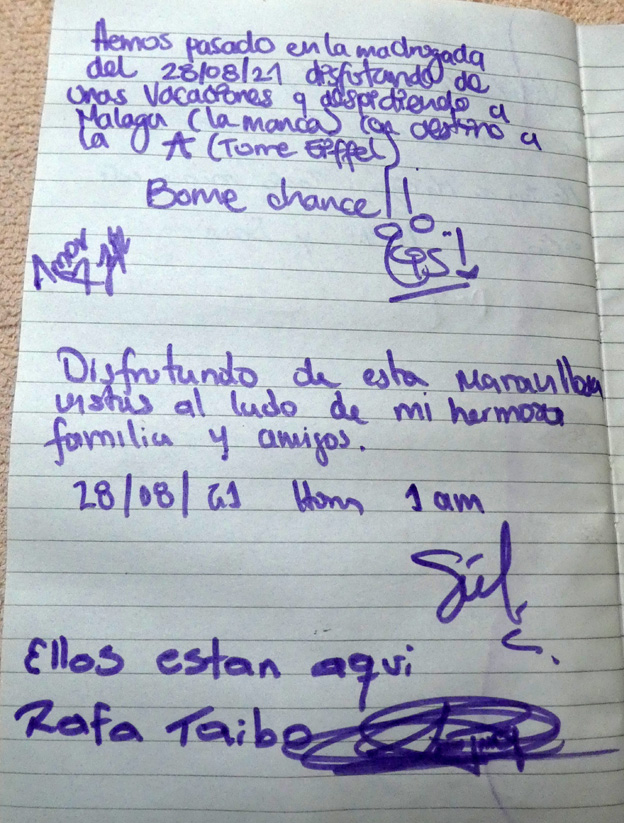 Hemos pasado en la madrugada
del 28/08/21 disfrutando de
unas Vacaciones y despidiendo a
Malaga (la manca) con destino a
la A (Torre Eiffel)
Bonne chance!!
Amor
Disfrutando de esta Maravillosa
vistas al lado de mi hermosa
familia y amigos.
28/08/21 Hora 1 am
C.
Ellos estan aqui
Rafa Taibo